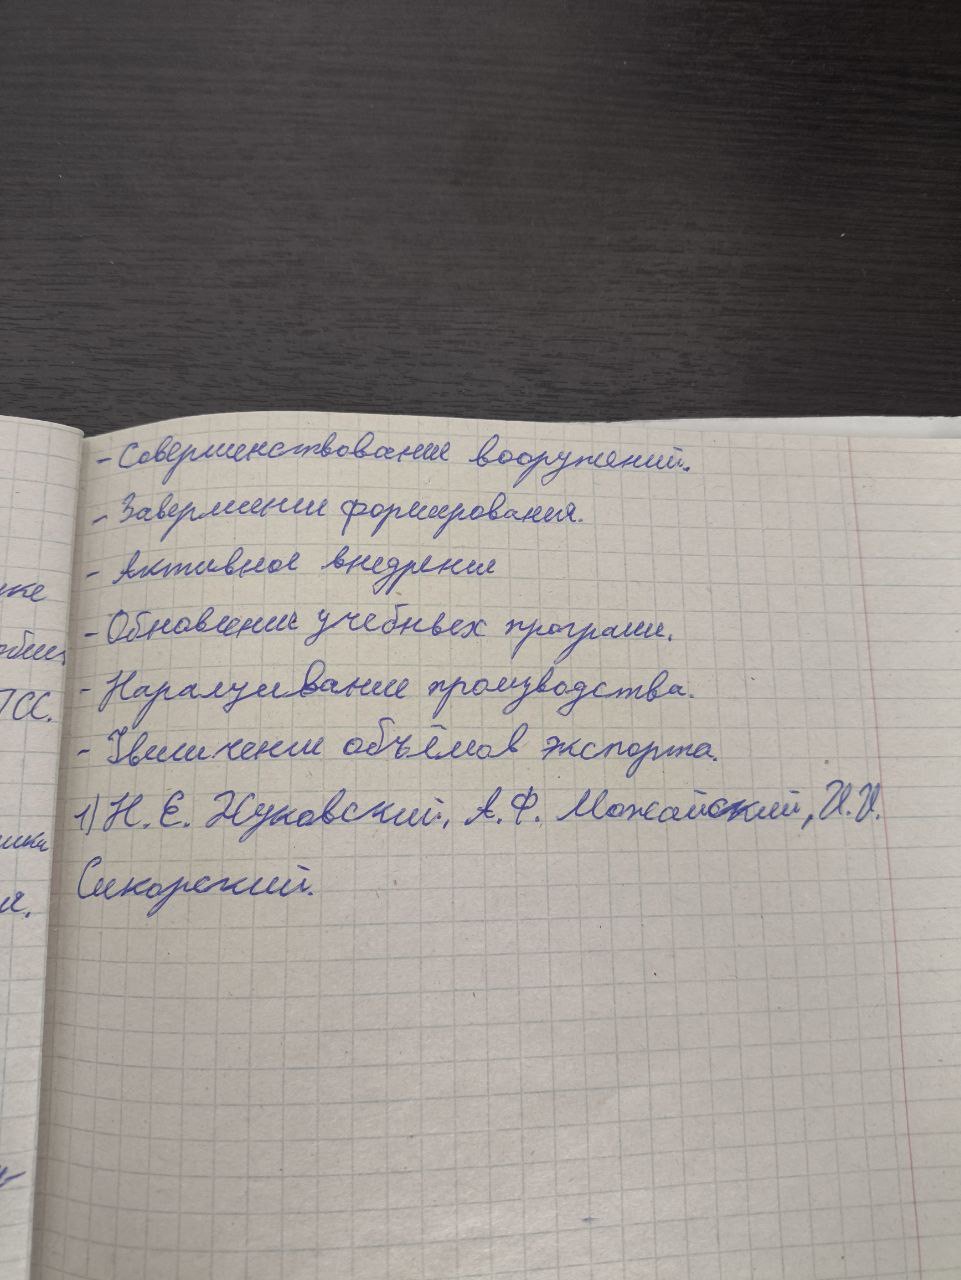 - Совершенствование вооружений.
- Завершение формирования.
- Активное внедрение
- Обновление учебных програми.
- Наралуивание производства.
- Увеличение объёмов экспорта.
1) Н. Е. Жуковский, А. Ф. Можайский, И. И.
Сикорский.
ПСС.